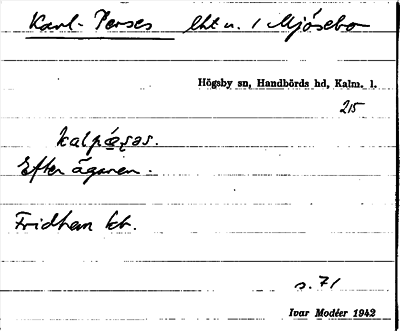 Karl-Perses lht u. / Mjösebo
Högsby sn, Handbörds hd, Kalm. l.
215
Efter ägaren.
Fridhem
s. 71
Ivar Modéer 1942